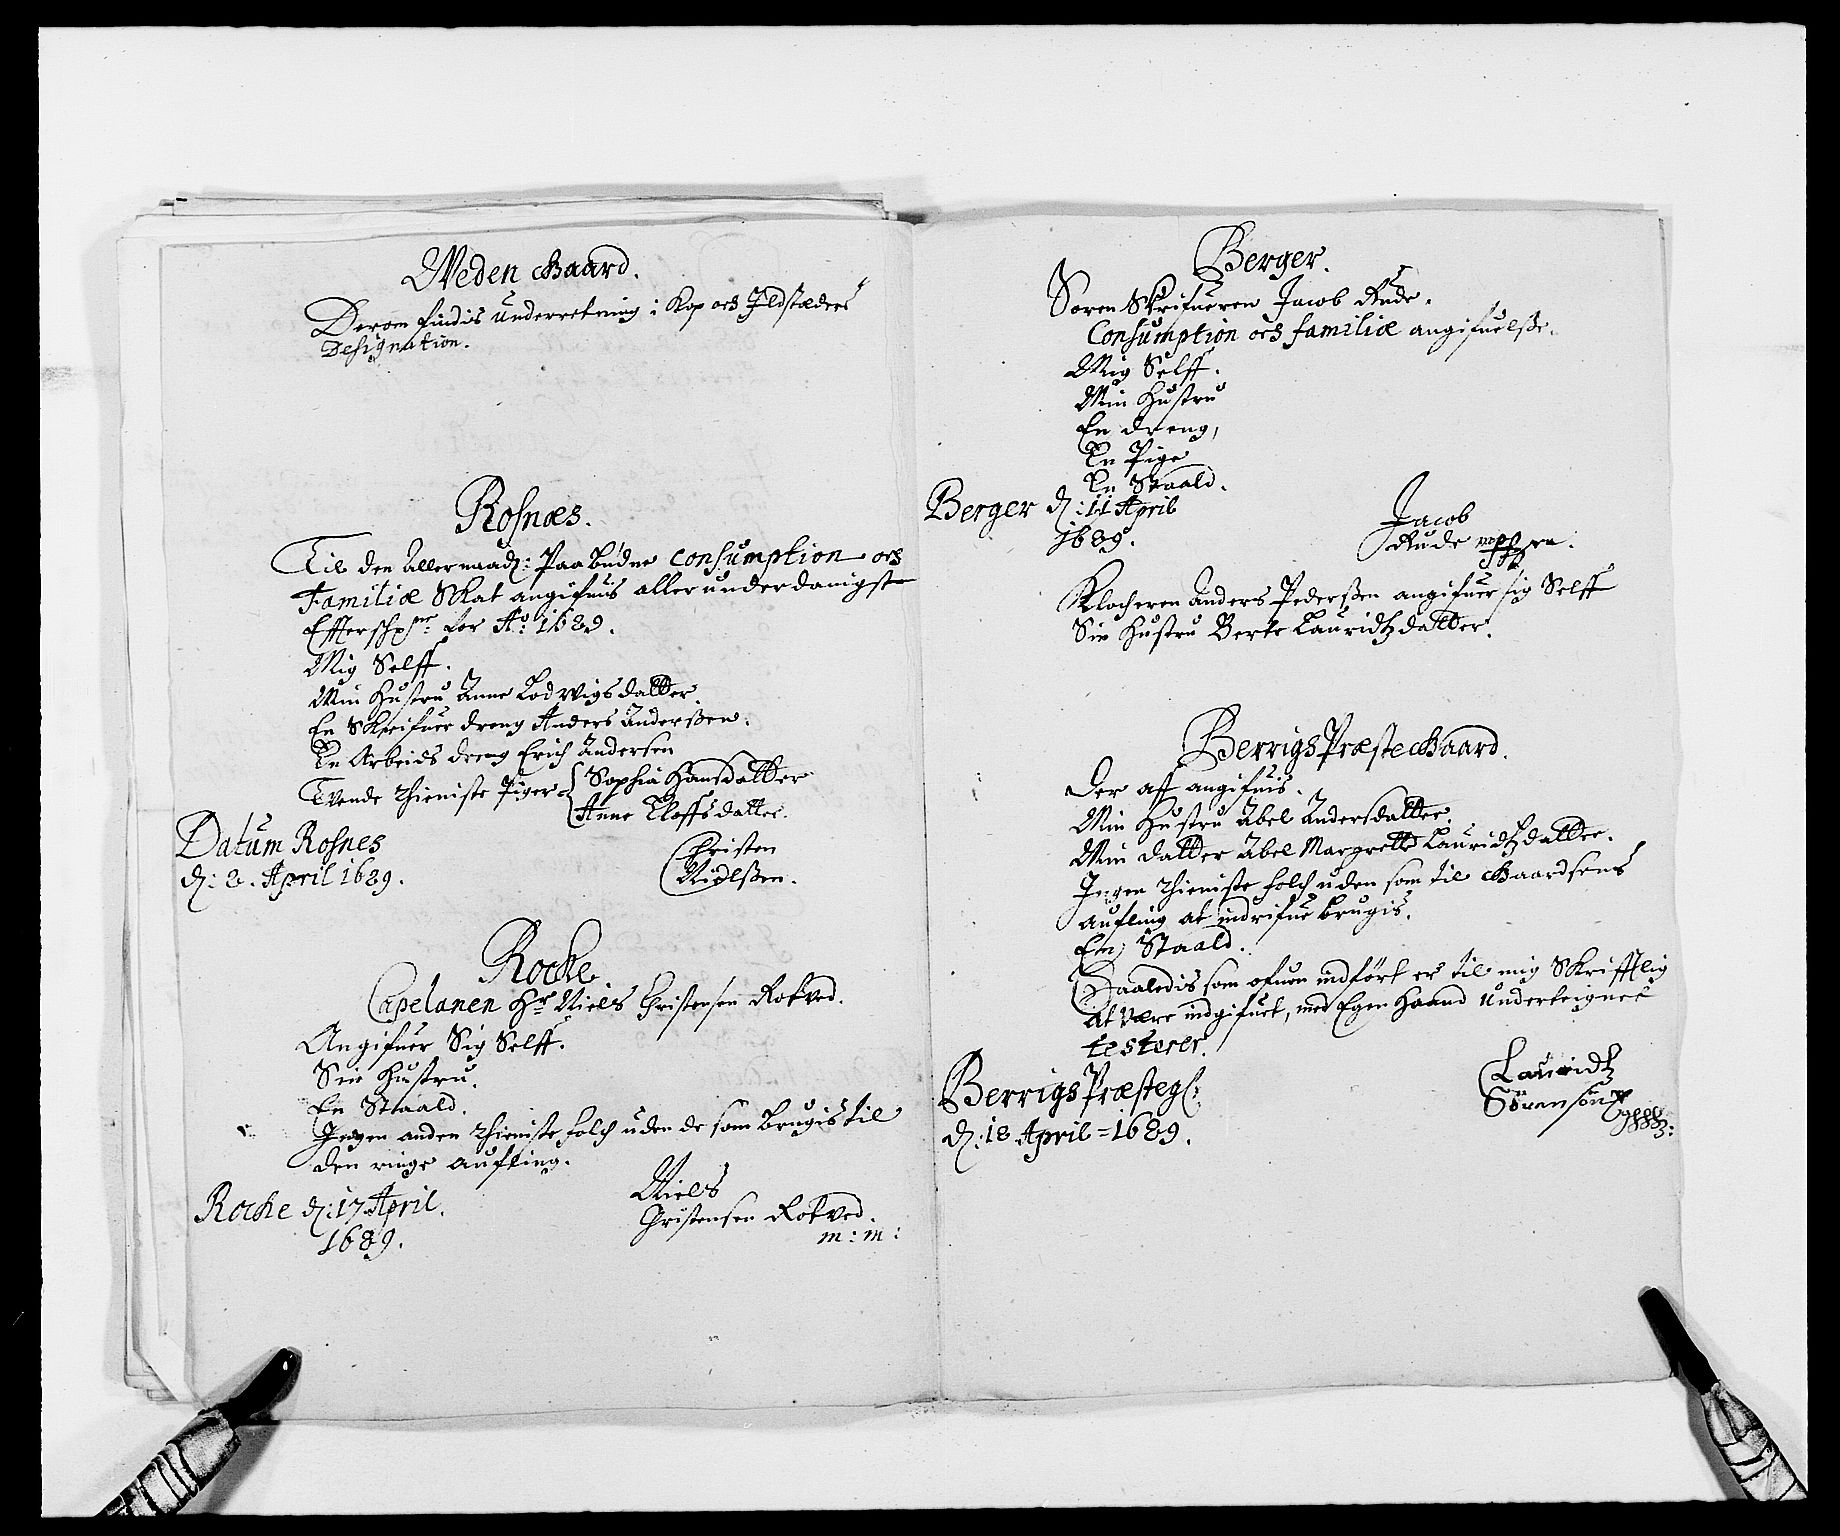 Weden Gaard.
Derom findis underretning i Kop och Ildstæders
Designation.
Rosnæs.
Til den Allernaad: Paabudne Consumption och
Familiæ Skat angifuis aller underdanigst
for Ao: 1689.
Mig Selff.
Min Hustru Anne Lodwigsdatter
En Skrifuer dreng Anders Anderssen.
En Arbeids dreng Erich Andersen
Tvende thieniste Piger = { Sophia Hansdatter
Anne Eloffsdatter.
Datum Rosnes
d: 8. April 1689.
Christen
Nielssen.
Rocke
Capelanen Hr Niels Christensen Rotved.
Angifuer Sig Selff.
Sin Hustru.
En Staald.
Ingen anden thieniste folch uden de som brugis til
den ringe aufling.
Rocke d: 17 April.
1689.
Niels
Christensen Rotved.
m: m:
Berger.
Soren Skrifueren Jacob Rude.
Consumption och familiæ angifuelsse.
Mig Selff.
Min Hustru
En dreng,
En Pige
En Staald.
Berger d: 11 April
1689.
Jacob
Rude
Klocheren Anders Pederssen angifuer sig Selff
Sin Hustru Berte Lauridtzdatter.
Berrigs Præstegaard.
Der aff angifuis.
Min Hustru Abel Andersdatter.
Min datter Abel Margrette Lauridtzdatter.
Ingen thieniste folch uden som til Gaardsens
aufling at indrifue brugis.
En Staald.
Saaledis som ofuen indfört er til mig Skrifftlig
at være indgifuet, med Egen Haand underteignet
testerer.
Berrigs Præsteg:
d: 18 April = 1689.
Lauridtz
Sörensön